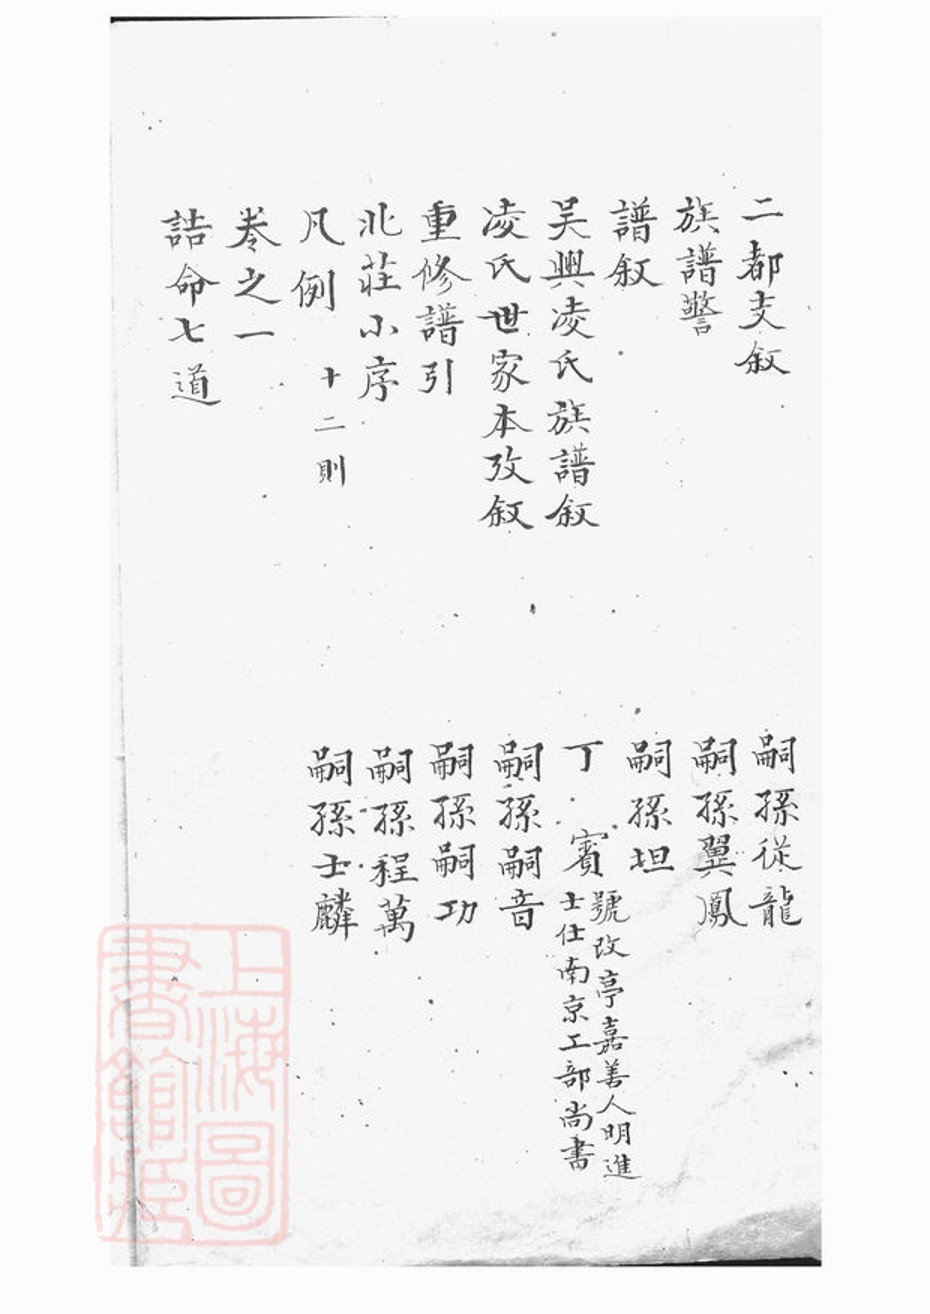 二都支叙　嗣孫從龍
族譜警　嗣孫翼鳳
譜叙　嗣孫坦
吴興凌氏族譜叙　丁賓　號改亭嘉善人明進
士仕南京工部尚書
凌氏世家本攷叙　嗣孫嗣音
重修譜引　嗣孫嗣功
北莊小序　嗣孫程萬
凡例　十二則　嗣孫士麟
卷之一
誥命七道
上海圖
書館藏